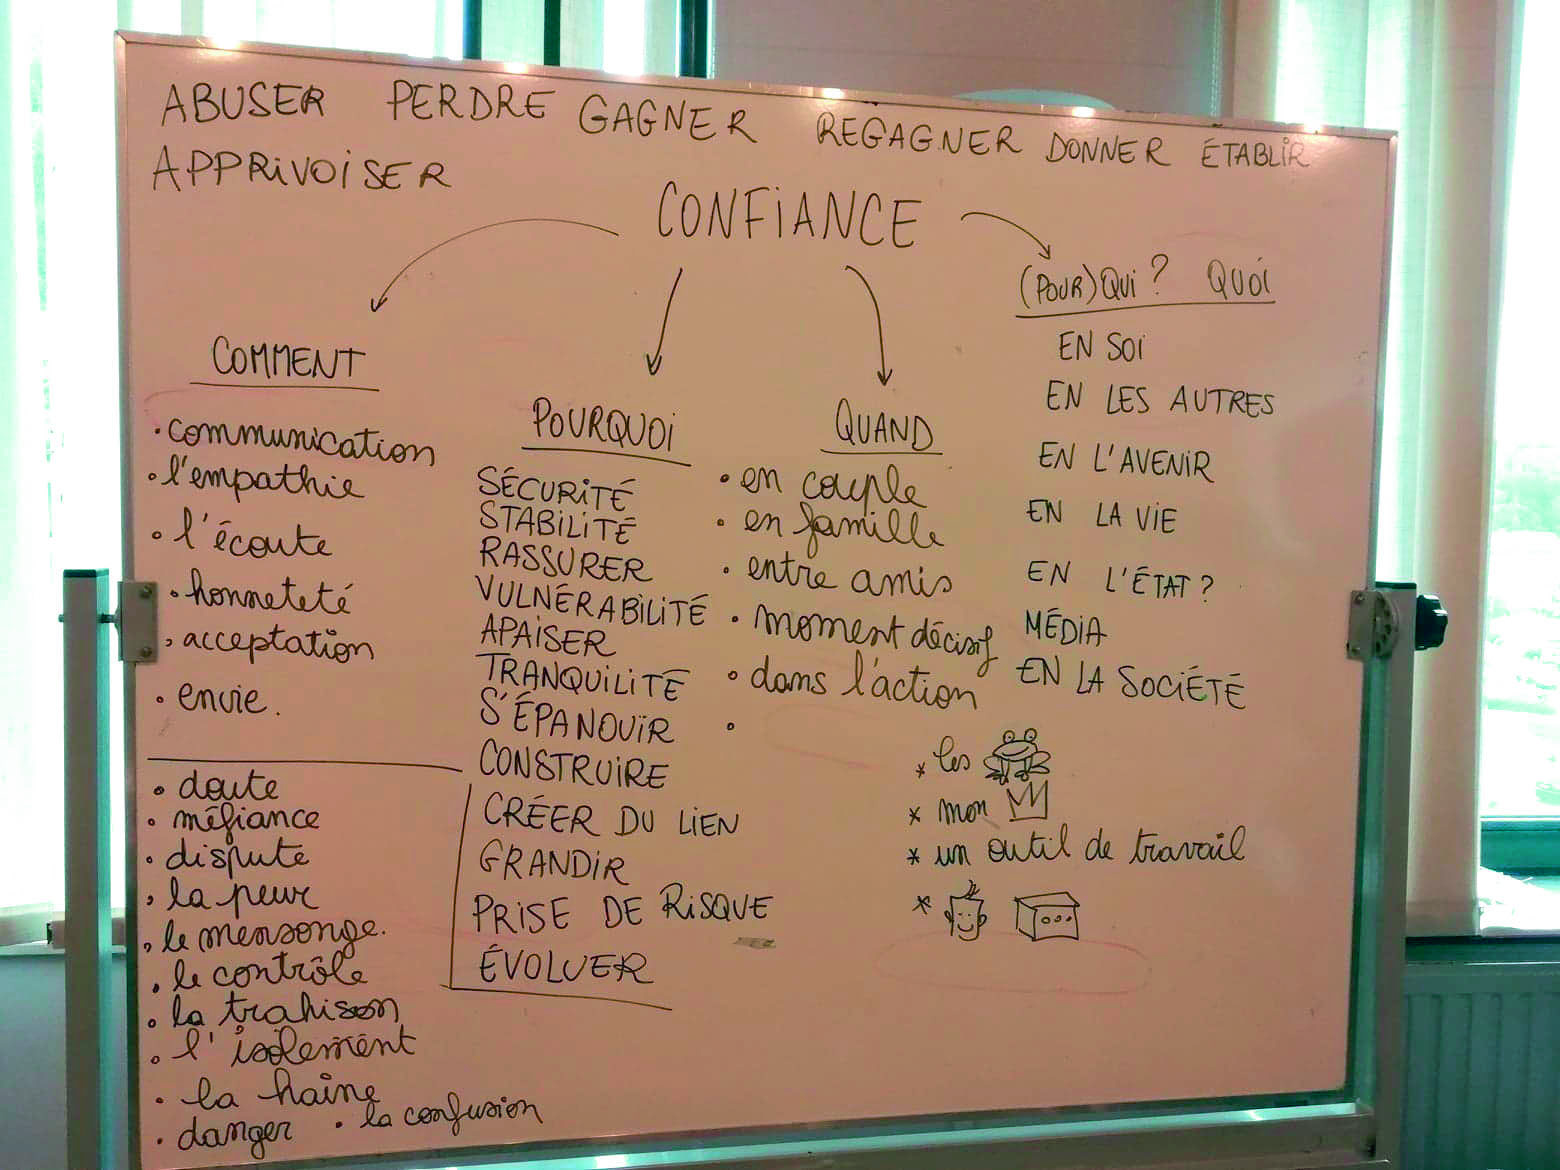 ABUSER PERDRE GAGNER REGAGNER DONNER ÉTABLIR
APPRIVOISER
CONFIANCE
COMMENT
• communication
• l'empathie
• l'écoute
• honneteté
• acceptation
• envie.
• doute
• méfiance
• dispute
• la peur
• le mensonge.
• le contrôle
• la trahison
• l'isolement
• la haine
• danger • la confusion
POURQUOI
SÉCURITÉ
STABILITÉ
RASSURER
VULNÉRABILITÉ
APAISER
TRANQUILITÉ
S'ÉPANOUIR
CONSTRUIRE
CRÉER DU LIEN
GRANDIR
PRISE DE RISQUE
ÉVOLUER
QUAND
• en couple
• en famille
• entre amis
• moment décisif
• dans l'action
•
(POUR) QUI ? QUOI
EN SOI
EN LES AUTRES
EN L'AVENIR
EN LA VIE
EN L'ÉTAT ?
MÉDIA
EN LA SOCIÉTÉ
* les
* mon
* un outil de travail
*